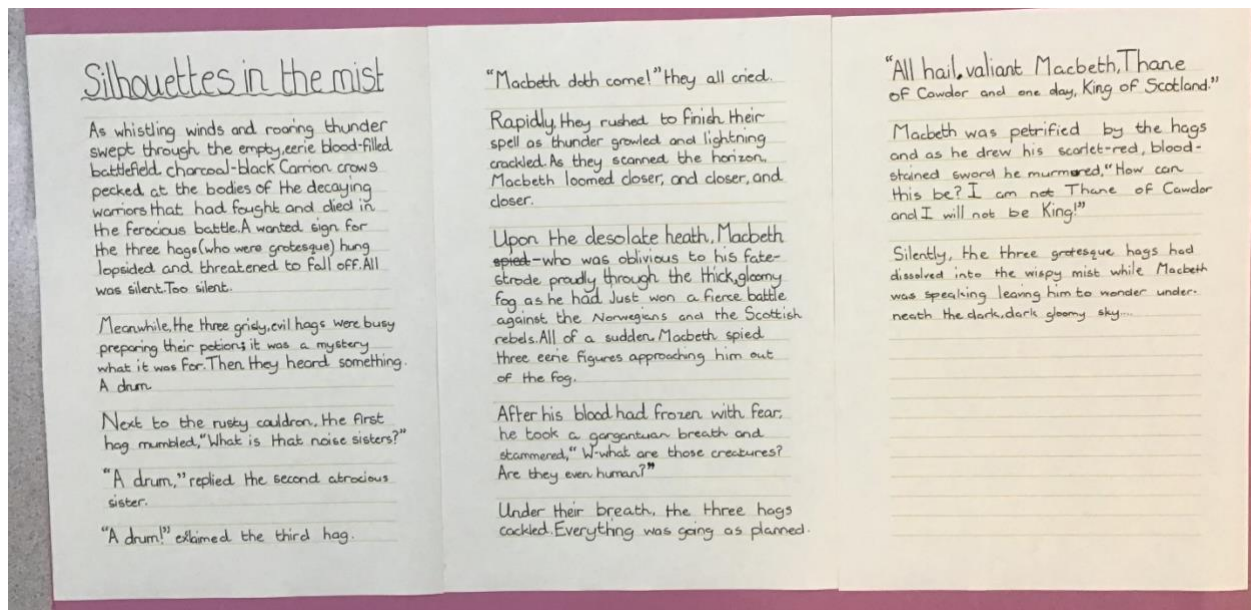 Silhouettes in the mist
As whistling winds and roaring thunder
swept through the empty, eerie blood-filled
battlefield, charcoal-black Carrion crows
pecked at the bodies of the decaying
warriors that had fought and died in
the ferocious battle. A wanted sign for
the three hags (who were grotesque) hung
lopsided and threatened to fall off. All
was silent. Too silent.
Meanwhile, the three grisly, evil hags were busy
preparing their potion; it was a mystery
what it was for. Then they heard something.
A drum
Next to the rusty cauldron, the first
hag mumbled, "What is that noise sisters?"
"A drum," replied the second atrocious
sister.
"A drum!" exlaimed the third hag.
"Macbeth doth come!" they all cried.
Rapidly, they rushed to finish their
spell as thunder growled and lightning
crackled. As they scanned the horizon,
Macbeth loomed closer, and closer, and
closer.
Upon the desolate heath, Macbeth
spied -who was oblivious to his fate-
strode proudly through the thick, gloomy
fog as he had Just won a fierce battle
against the Norwegians and the Scottish
rebels. All of a sudden, Macbeth spied
three eerie figures approaching him out
of the fog.
After his blood had frozen with fear,
he took a gargantuan breath and
stammered, "W-what are those creatures?
Are they even human?"
Under their breath, the three hags
cackled. Everything was going as planned.
"All hail, valiant Macbeth, Thane
of Cawdor and one day, King of Scotland."
Macbeth was petrified by the hags
and as he drew his scarlet-red, blood-
stained sword he murmered, "How can
this be? I am not Thane of Cawdor
and I will not be King!"
Silently, the three grotesque hags had
dissolved into the wispy mist while Macbeth
was speaking leaving him to wonder under-
neath the dark, dark gloomy sky...